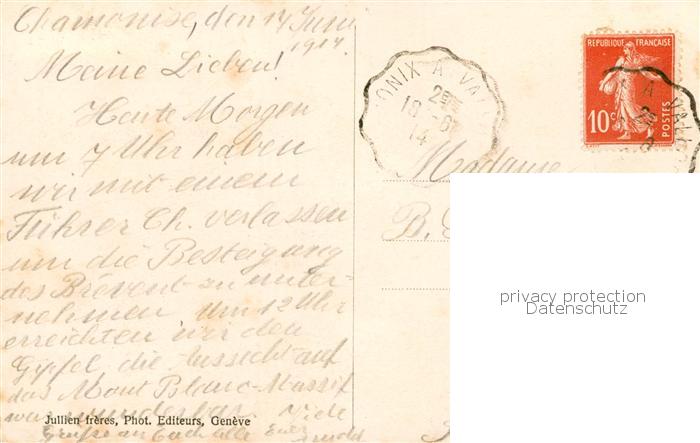 Chamonise, den 17 Juni
1914.
Meine Lieben!
Heute Morgen
um 7 Uhr haben
wir mit einem
Führer Ch. verlassen
um die Besteigung
des Brévent zu unter-
nehmen Um 12 Uhr
erreichten wir den
Gipfel, die Aussicht auf
das Mont Blanc-Massif
war wunderbar. Viele
Grüsse an Euch alle Euer
Jullien frères, Phot. Editeurs, Genève
ONIX A VA
2
18-6
14
REPUBLIQUE FRANÇAISE
10c
POSTES
Madame
B.
privacy protection
Datenschutz